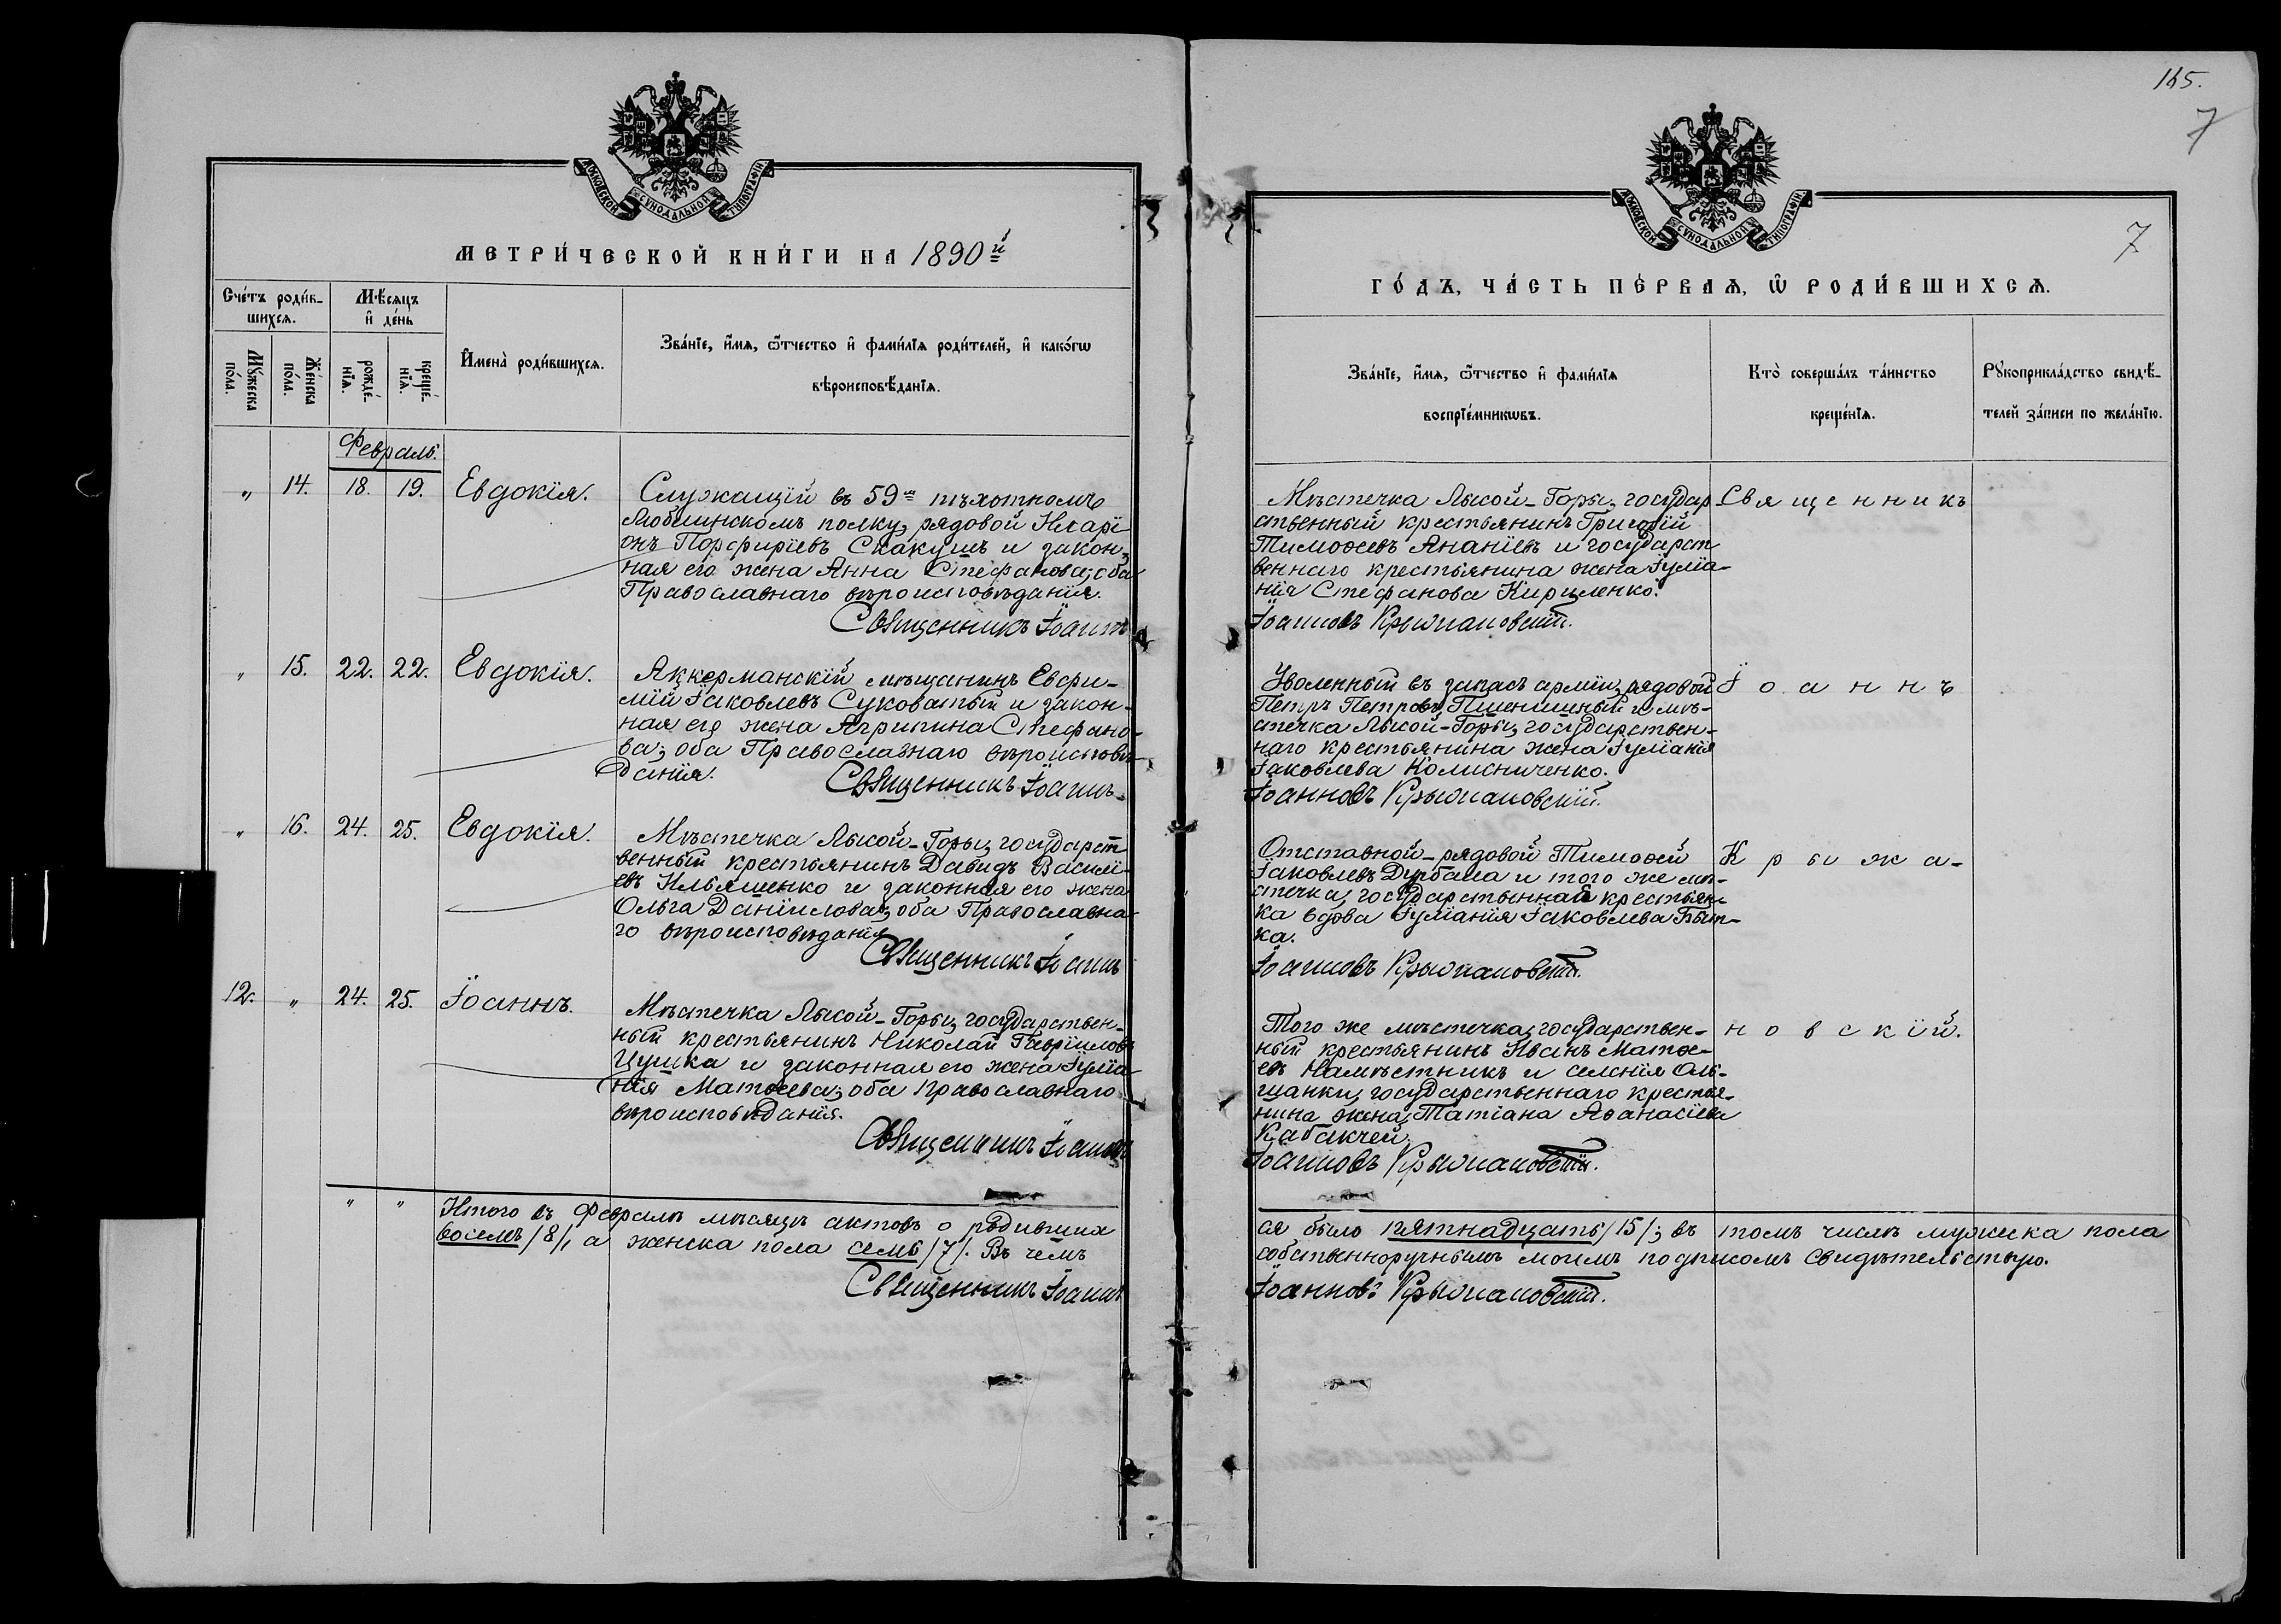 145.
7
МОСКОВСКОЙ СѴНОДАЛЬНОЙ ТИПОГРАФІИ
МЕТРИ́ЧЕСКОЙ КНИ́ГИ НА 1890й
Сче́тъ роди́в-
шихсѧ.
Мѣ́сѧцъ
и҆ де́нь
Мꙋ́жеска
по́ла.
Же́нска
по́ла.
рожде́-
нїѧ.
креще́-
нїѧ.
И҆мена̀ роди́вшихсѧ.
Зва́нїе, и҆́мѧ, ѻ҆́тчество и҆ фами́лїѧ роди́телей, и҆ како́гѡ
вѣроисповѣ́данїѧ.
Февраль.
„ 14. 18. 19. Евдокія.
Служащій въ 59мъ пѣхотномъ
Люблинскомъ полку, рядовой Иларі
онъ Порфиріевъ Скакунъ и закон-
ная его жена Анна Стефанова; оба
Православнаго вѣроисповѣданія.
Священникъ Іоаннъ
„ 15. 22. 22. Евдокія.
Аккерманскій мѣщанинъ Евфи-
мій Іаковлевъ Суковатый и закон-
ная его жена Агрипина Стефано-
ва; оба Православнаго вѣроисповѣ-
данія.
Священникъ Іоаннъ
„ 16. 24. 25. Евдокія.
Мѣстечка Лысой-Горы, государст
венный крестьянинъ Давидъ Василі-
евъ Ильяшенко и законная его жена
Ольга Даніилова; оба Православна-
го вѣроисповѣданія
Священникъ Іоаннъ
12. „ 24. 25. Іоаннъ.
Мѣстечка Лысой-Горы, государствен-
ный крестьянинъ Николай Гавріиловъ
Цушка и законная его жена Іуліа-
нія Матѳеева; оба Православнаго
вѣроисповѣданія.
Священникъ Іоаннъ
„ „ Итого въ Февралѣ мѣсяцѣ актовъ о родивших
восемь /8/, а женска пола семь /7/. Въ чемъ
Священникъ Іоаннъ
7
МОСКОВСКОЙ СѴНОДАЛЬНОЙ ТИПОГРАФІИ
ГО́ДЪ, ЧА́СТЬ ПЕ́РВАѦ, Ѡ҆ РОДИ́ВШИХСѦ.
Зва́нїе, и҆́мѧ, ѻ҆́тчество и҆ фами́лїѧ
воспрїе́мникѡвъ.
Кто̀ соверша́лъ та́инство
креще́нїѧ.
Рꙋкоприкла́дство свидѣ́-
телей за́писи по жела́нїю.
Мѣстечка Лысой-Горы, государ
ственный крестьянинъ Григорій
Тимоѳеевъ Ананіевъ и государст
веннаго крестьянина жена Іуліа-
нія Стефанова Кириленко.
Іоанновъ Крыжановскій.
Священникъ
Уволенный въ запасъ арміи, рядовой
Петръ Петровъ Пшеничный и мѣ-
стечка Лысой-Горы, государствен-
наго крестьянина жена Іуліанія
Іаковлева Колисниченко.
Іоанновъ Крыжановскій.
Іоаннъ
Отставной-рядовой Тимоѳей
Іаковлевъ Дурбала и того же мѣ-
стечка, государственная крестьян-
ка вдова Іуліанія Іаковлева
ка.
Іоанновъ Крыжановскій.
Крыжа-
Того же мѣстечка, государствен-
ный крестьянинъ Иванъ Матѳе-
евъ Намѣстникъ и селенія Оль-
шанки, государственнаго крестья-
нина жена, Татіана Аѳанасіева
Кабакчей.
Іоанновъ Крыжановскій.
новскій.
ся было пятнадцать /15/; въ томъ числѣ мужеска пола
собственноручнымъ моимъ подписомъ свидѣтельствую.
Іоанновъ Крыжановскій.